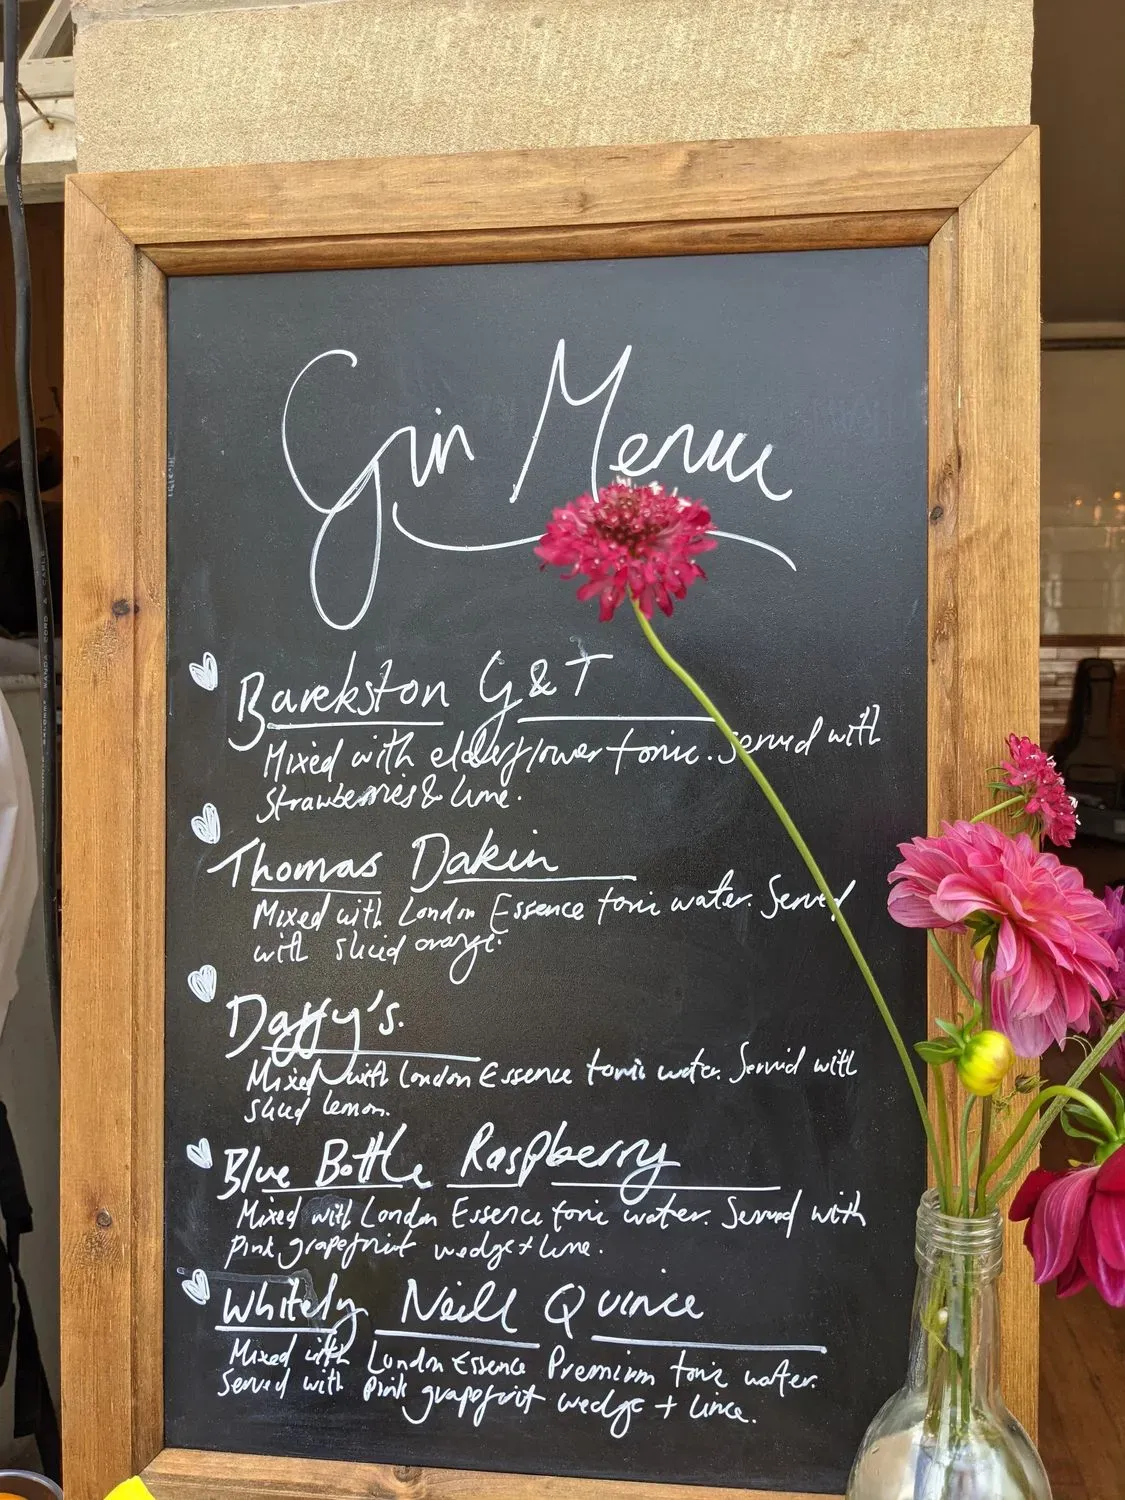 Gin Menu
Barekston G&T
Mixed with elderflower tonic. Served with
strawberries & lime.
Thomas Dakin
Mixed with London Essence tonic water. Served
with sliced orange.
Daffy's.
Mixed with London Essence tonic water. Served with
sliced lemon.
Blue Bottle Raspberry
Mixed with London Essence tonic water. Served with
pink grapefruit wedge + lime.
Whitely Neill Quince
Mixed with London Essence Premium tonic water.
Served with pink grapefruit wedge + lime.